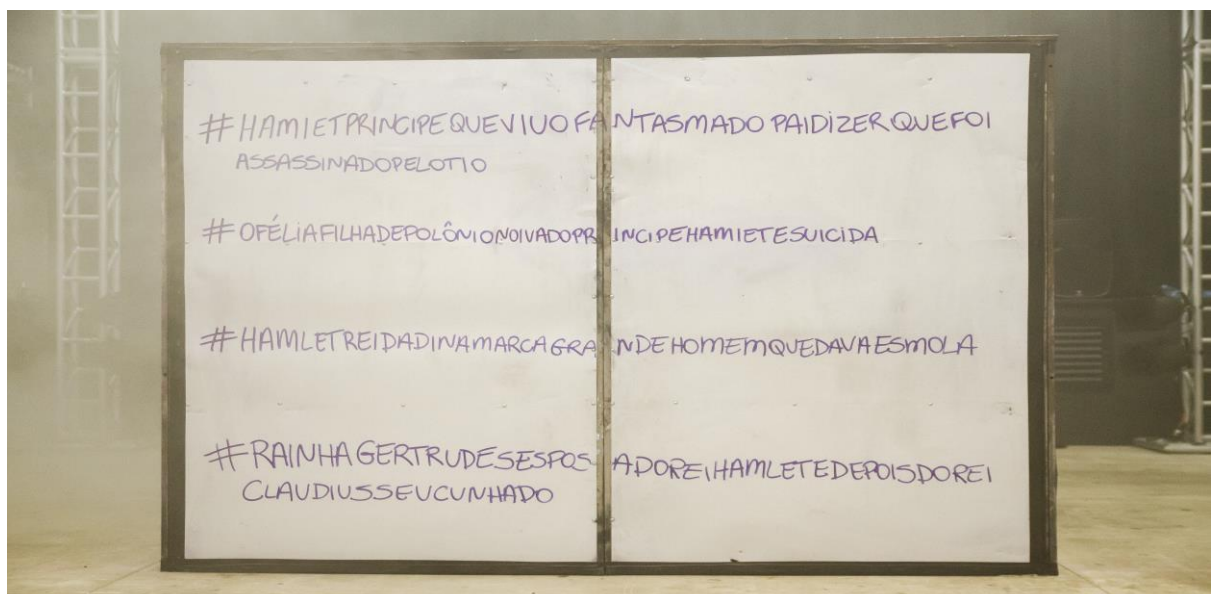 #HAMIETPRINCIPEQUEVIUOFANTASMADOPAIDIZERQUEFOI
ASSASSINADOPELOTIO
#OFÉLIAFILHADEPOLÔNIONOIVADOPRINCIPEHAMIETESUICIDA
#HAMLETREIDADINAMARCAGRANDEHOMEMQUEDAVAESMOLA
#RAINHAGERTRUDESESPOSADOREIHAMLETEDEPOISDOREI
CLAUDIUSSEUCUNHADO